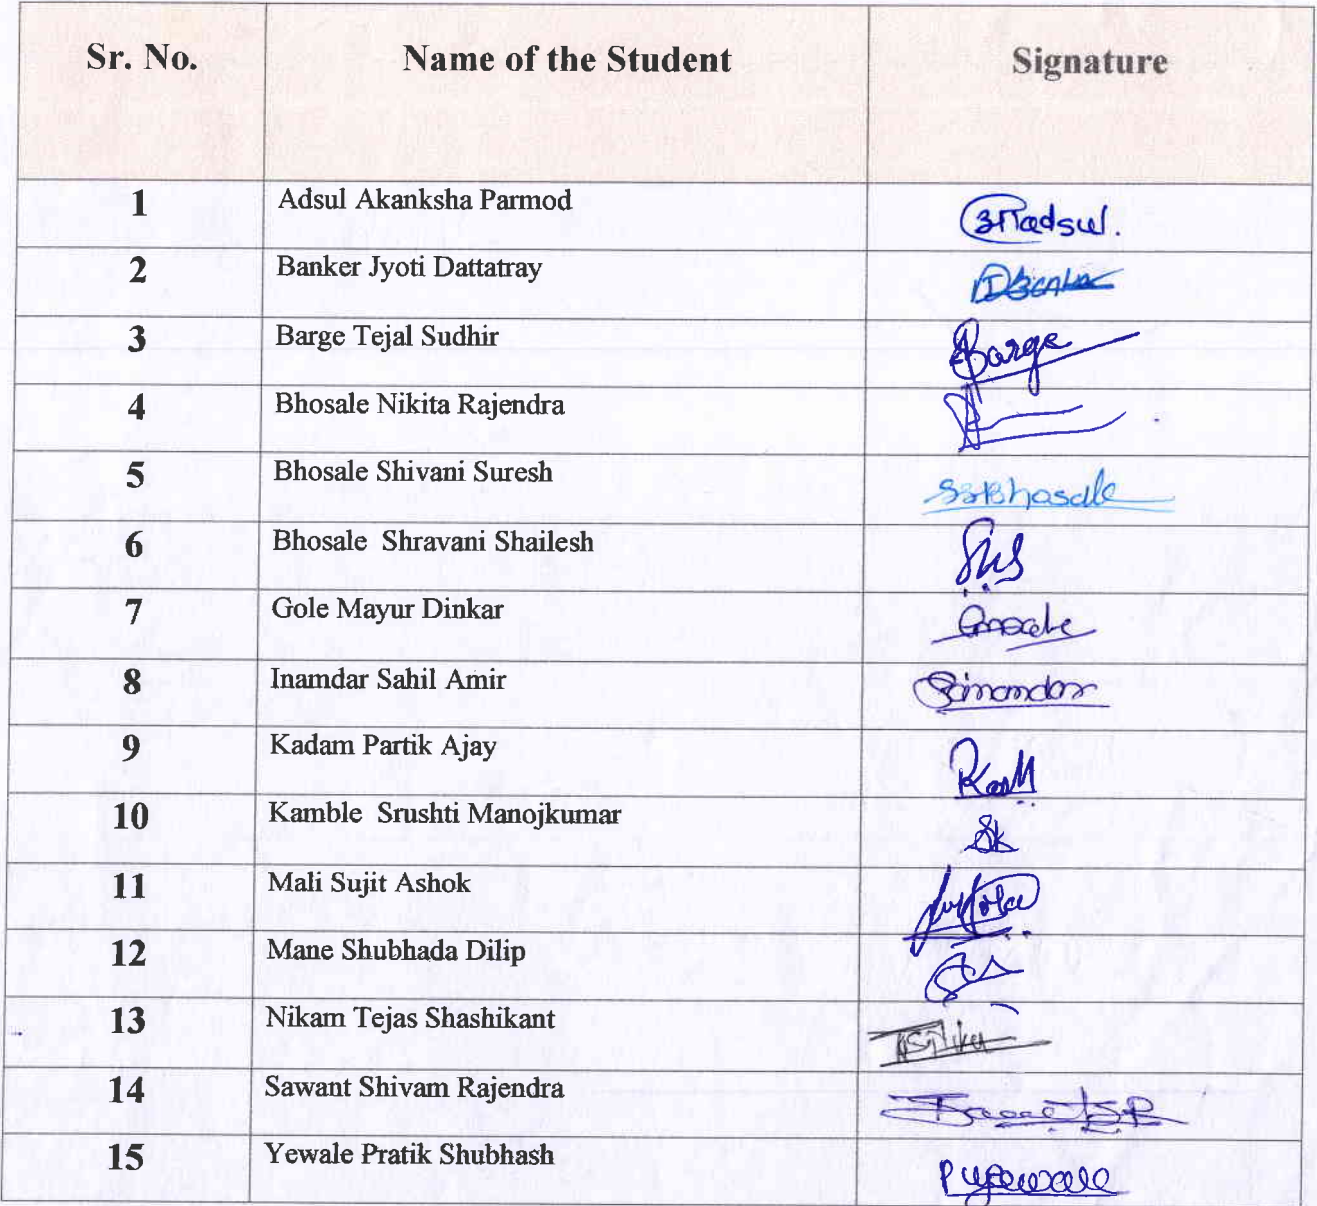 Sr. No. Name of the Student Signature
1 Adsul Akanksha Parmod
2 Banker Jyoti Dattatray
3 Barge Tejal Sudhir Barge
4 Bhosale Nikita Rajendra
5 Bhosale Shivani Suresh SSBhosale
6 Bhosale Shravani Shailesh
7 Gole Mayur Dinkar
8 Inamdar Sahil Amir
9 Kadam Partik Ajay
10 Kamble Srushti Manojkumar SK
11 Mali Sujit Ashok
12 Mane Shubhada Dilip
13 Nikam Tejas Shashikant
14 Sawant Shivam Rajendra
15 Yewale Pratik Shubhash